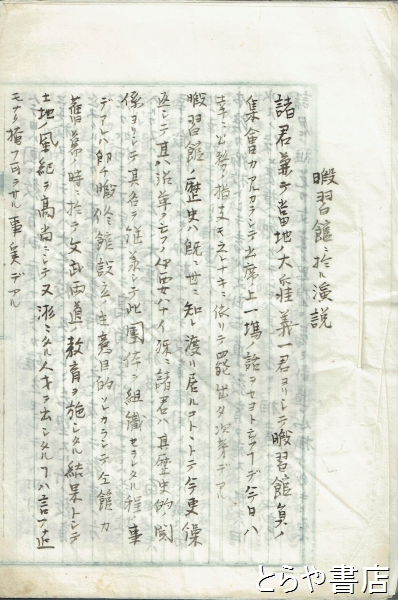 暇習館ニ於ル演説
諸君兼テ當地ノ大 義一君ヨリシテ暇習館員ノ
集會カアルカラシテ出席上一場ノ話ヲセヨトモフ デ今日ハ
幸ニ公務ノ指支モコレナキニ依リテ罷出タ次第デアル
暇習館ノ歴史ハ既ニ世ニ知レ渡リ居ルコトトテ今更繰
返シテ其ハ沿革ヲ 必要ハナイ殊ニ諸君ハ其歴史的関
係ヨリシテ其名ヲ シテ此團体ヲ組織セラレタル程ノ事
デアレハ即チ暇修館設立ノ 意目的 カラシテ全館カ
舊幕時ニ於テ文武両道ノ教育ヲ施シタル結果トシテ
土地ノ風紀ヲ高尚ニシテ又 タル人才ヲ出シタルコハ言フ迄
モナク掩フ可ラサル事実デアル
とらや書店